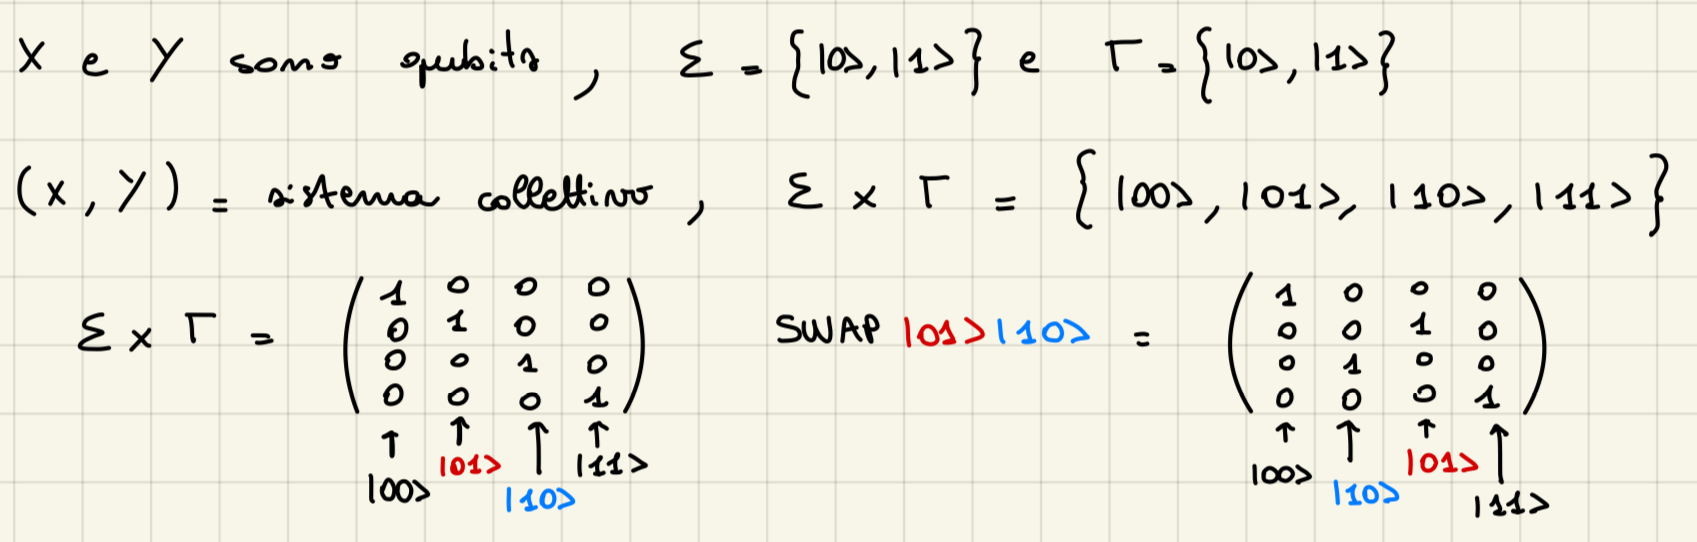 X e Y sono qubits, Σ = {|0>, |1>} e Γ = {|0>, |1>}
(X, Y) = sistema collettivo, Σ × Γ = {|00>, |01>, |10>, |11>}
Σ × Γ = (1 0 0 0
0 1 0 0
0 0 1 0
0 0 0 1)
↑ ↑ ↑ ↑
|00> |01> |10> |11>
SWAP |01> |10> = (1 0 0 0
0 0 1 0
0 1 0 0
0 0 0 1)
↑ ↑ ↑ ↑
|00> |10> |01> |11>